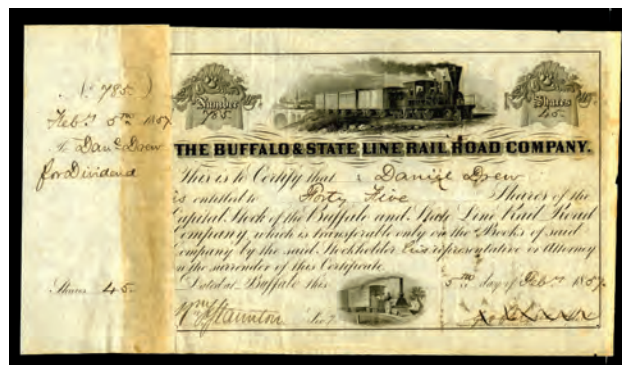 No 785
Feby 5th 1857
To Danl Drew
for Dividend
Shares 45
Number
785
Shares
45
THE BUFFALO & STATE LINE RAIL ROAD COMPANY.
This is to Certify that Daniel Drew
is entitled to Forty Five Shares of the
Capital Stock of the Buffalo and State Line Rail Road
Company, which is transferable only on the Books of said
Company by the said Stockholder his representative or Attorney
on the surrender of this Certificate
Dated at Buffalo this 5th day of Feby 1857
Staunton Secy